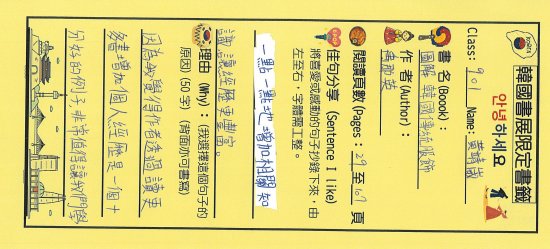 韓國書展限定書籤
안녕하세요
Class: 901 Name: 黃
書 名(Boook):
圖解 韓國傳統服飾
作 者(Author):
閱讀頁數(Pages: 29 至 167 頁
佳句分享 (Sentence I like)
將喜愛或感動的句子抄錄下來,由
左至右,字體需工整。
一點一點地增加相關知
識讓經歷更豐富。
理由 (Why):(我選擇這個句子的
原因(50字) (背面亦可書寫)
因為我覺得作者透過讀更
多書增加個人經歷是一個十
分好的例子非常值得讓我們學